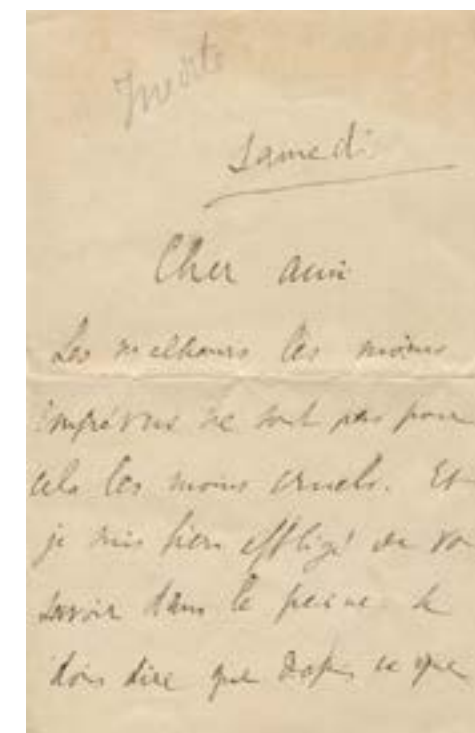 Samedi
Cher ami
Les malheurs les moins
imprévus ne sont pas pour
cela les moins cruels. Et
je suis bien affligé de vo
savoir dans la peine. Je
dois dire que d'après ce que